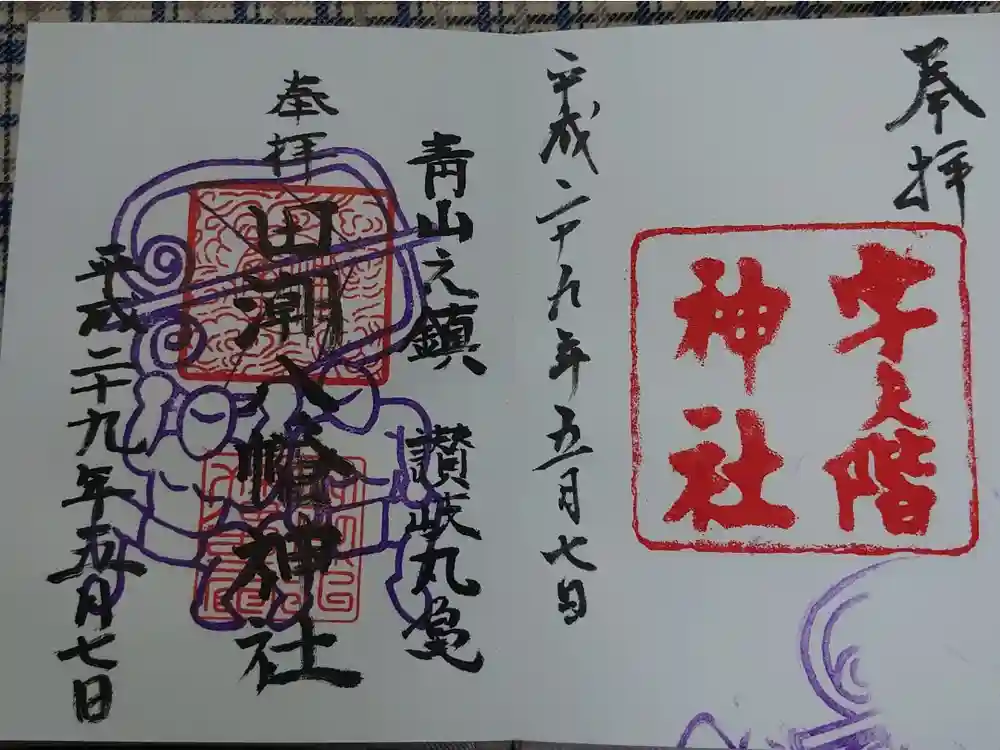 奉拝
宇夫階
神社
平成二十九年五月七日
青山之鎮 讃岐丸亀
奉拝
田潮八幡神社
平成二十九年五月七日